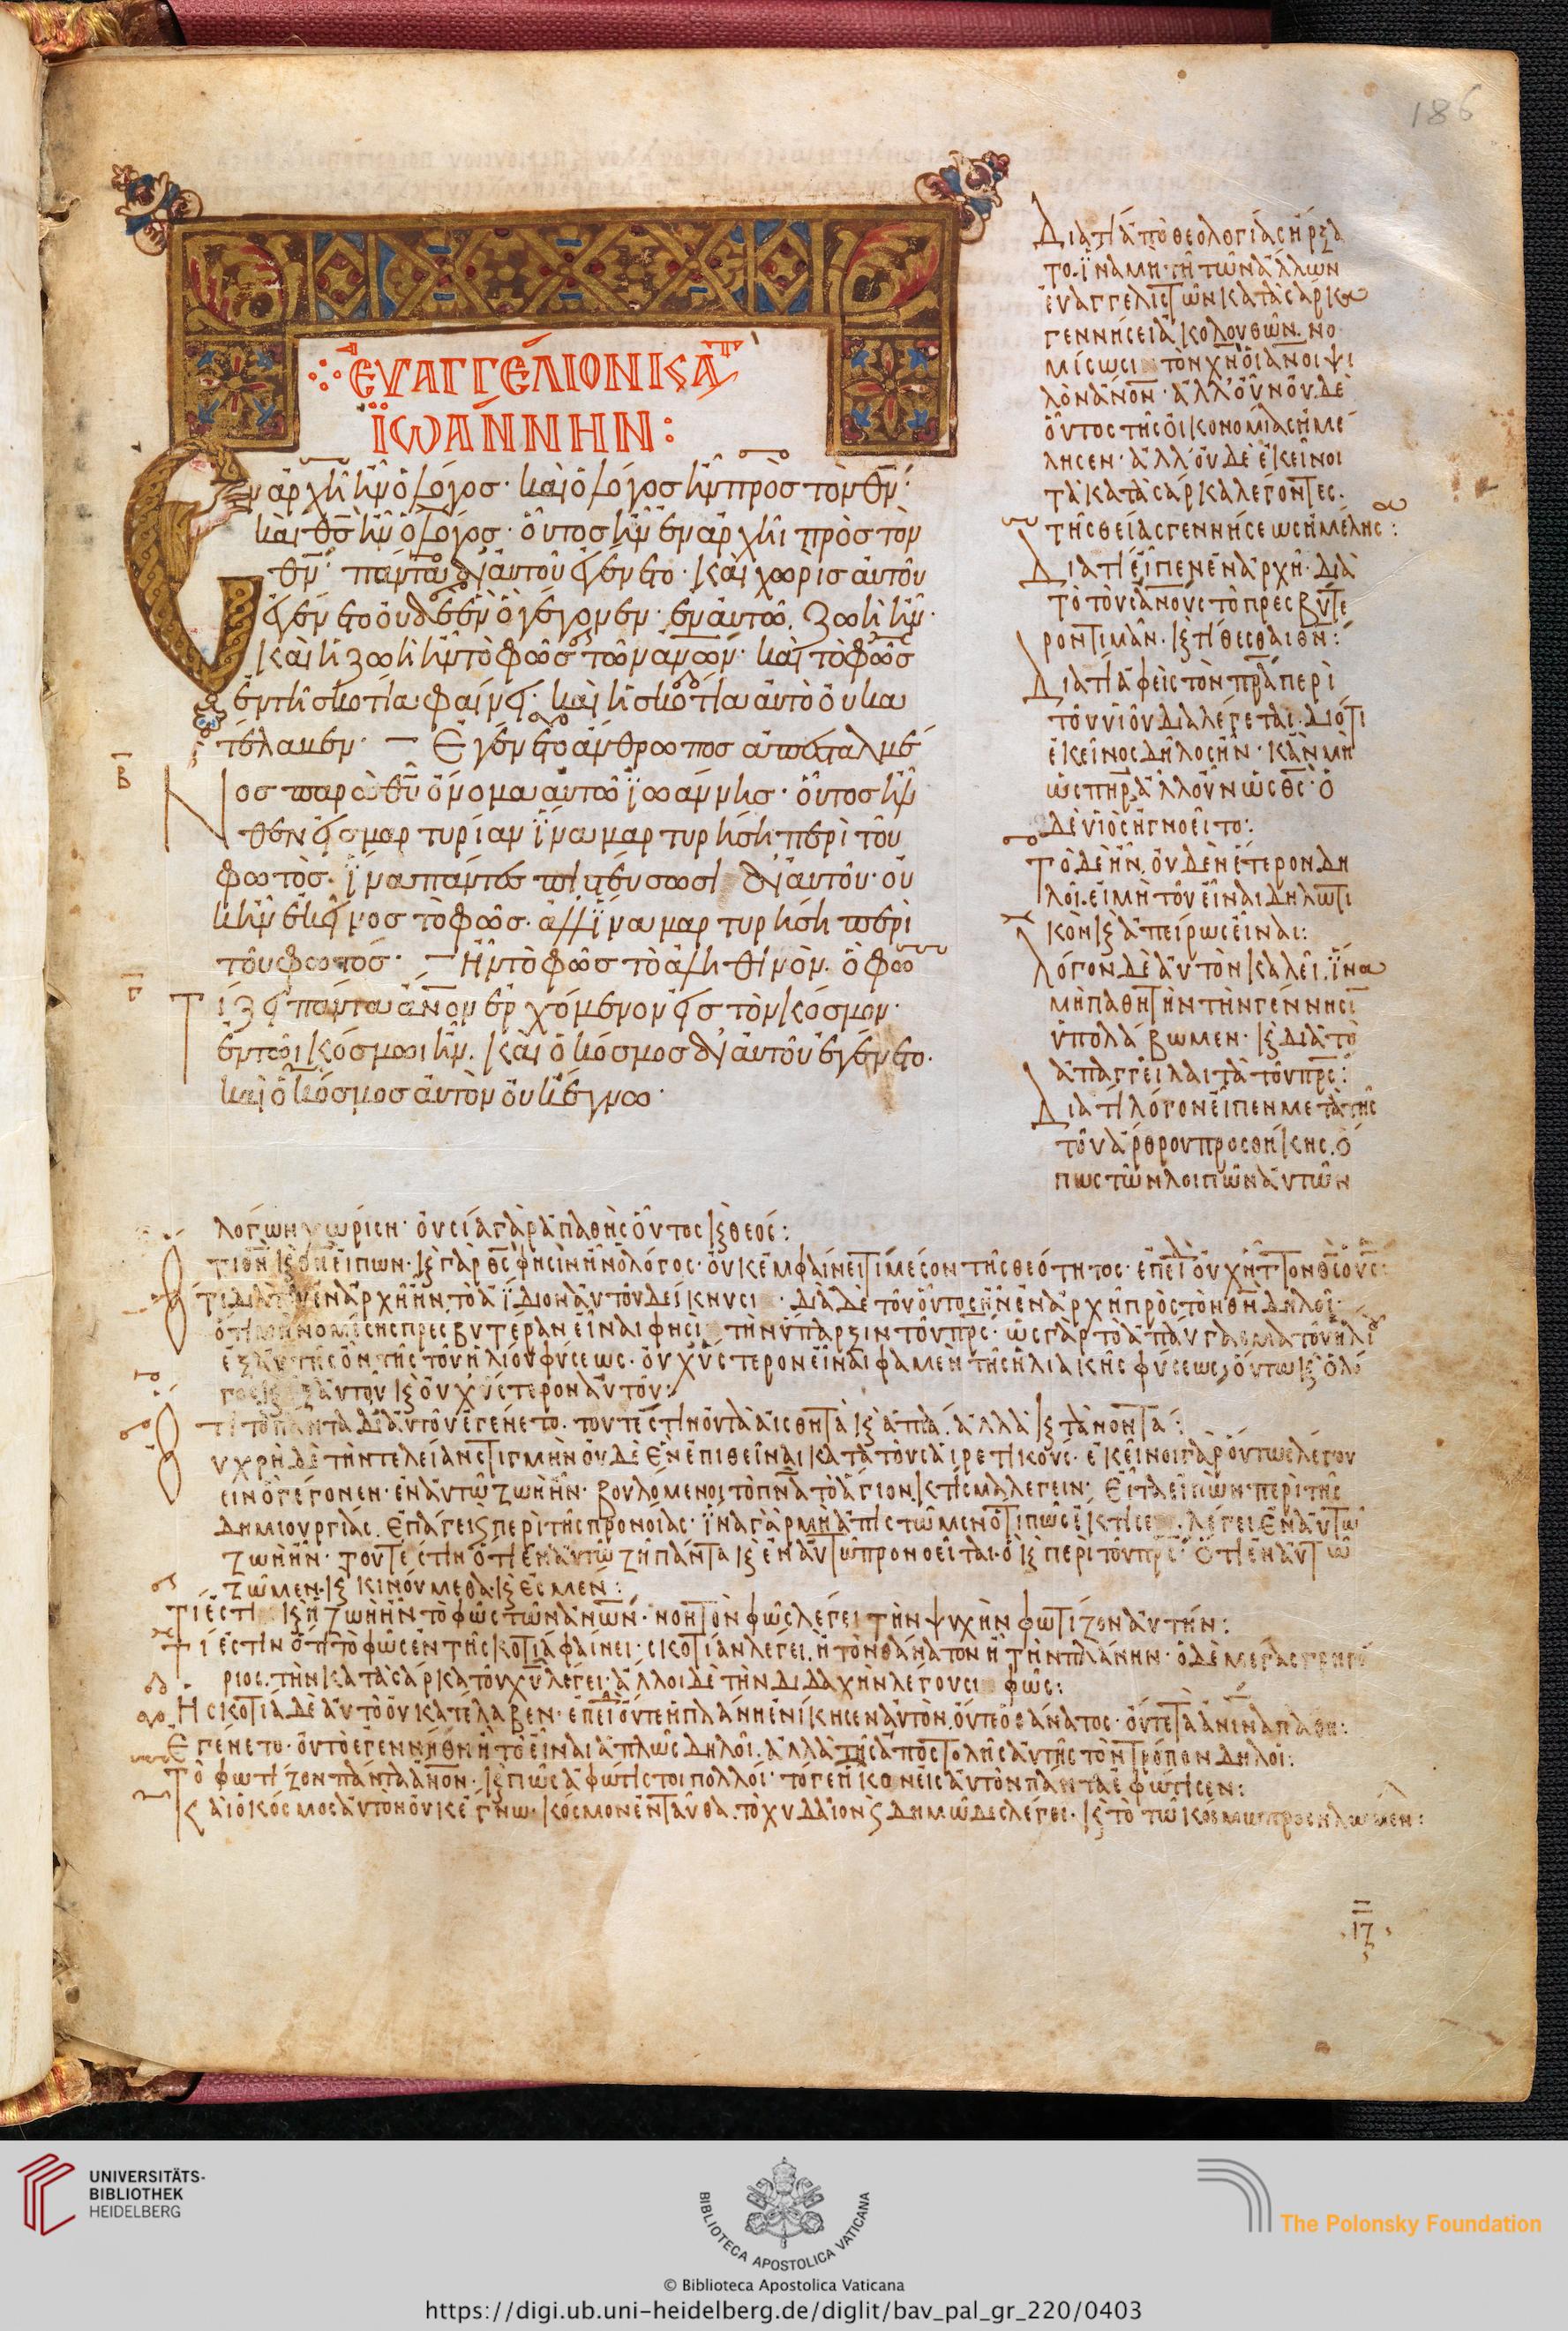 186
ΕΥΑΓΓΕΛΙΟΝ ΚΑΤ
ΪΩΑΝΝΗΝ:
Ἐν ἀρχῆ ἦν ὁ λόγος· καὶ ὁ λόγος ἦν πρὸς τὸν θν·
καὶ θς ἦν ὁ λόγος· οὗτος ἦν ἐν ἀρχῆι πρὸς τὸν
θν· πάντα δι' αὐτοῦ ἐγένετο· καὶ χωρὶς αὐτοῦ
ἐγένετο οὐδὲ ἓν ὃ γέγονεν· ἐν αὐτῶ ζωὴ ἦν·
καὶ ἡ ζωὴ ἦν τὸ φῶς τῶν ανων· καὶ τὸ φῶς
ἐν τῆ σκοτία φαίνει· καὶ ἡ σκοτία αὐτὸ οὐ κα
τέλαβεν· Ἐγένετο ἄνθρωπος ἀπεσταλμέ
Β
νος παρὰ θυ ὄνομα αὐτῶ ϊωάννης· οὗτος ἦλ
θεν εἰς μαρτυρίαν ἵνα μαρτυρήση περὶ τοῦ
φωτός· ἵνα πάντες πιστεύσωσι δι' αὐτοῦ· οὐ
κ ἦν ἐκεῖνος τὸ φῶς· ἀλλ' ἵνα μαρτυρήση περὶ
τοῦ φωτός· Ἦν τὸ φῶς τὸ ἀληθινόν· ὃ φω
Γ
τίζει πάντα ανον ἐρχόμενον εἰς τὸν κόσμον·
ἐν τῶι κόσμωι ἦν· καὶ ὁ κόσμος δι' αὐτοῦ ἐγένετο·
καὶ ὁ κόσμος αὐτὸν οὐκ ἔγνω·
Διατί ἀπὸ θεολογίας ἤρξα
το· ἵνα μὴ τῆ τῶν ἄλλων
εὐαγγελιστῶν κατὰ σάρκα
γεννήσει ἀκολουθῶν· νο
μίσωσι τὸν χν οἱ ανοι ψι
λὸν ανον· ἀλλ' οὖν οὐδὲ
οὗτος τῆς οἰκονομίας ἠμέ
λησεν· ἀλλ' οὐδὲ ἐκεῖνοι
τὰ κατὰ σάρκα λέγοντες·
τῆς θείας γεννήσεως ἠμέλησ:
Διατί εἶπεν ἐν ἀρχῆ· διὰ
τὸ τοὺς ανους τὸ πρεσβύτε
ρον τιμᾶν· κ τίθεσθαι θν:
Διατί ἀφεὶς τὸν πρα περὶ
τοῦ υἱοῦ διαλέγεται· διότι
ἐκεῖνος δῆλος ἦν· κἂν μὴ
ὡς πηρ ἀλλ' οὖν ὡς θς· ὁ
δὲ υἱὸς ἠγνοεῖτο:
Τὸ δὲ ἦν, οὐδὲν ἕτερον δη
λοῖ· εἰ μὴ τοῦ εἶναι δηλωτι
κὸν κ ἀπείρως εἶναι:
Λόγον δὲ αὐτὸν καλεῖ· ἵνα
μὴ παθητὴν τὴν γέννησι
ὑπολάβωμεν· κ διὰ τὸ
ἀπαγγεῖλαι τὰ τοῦ πρς:
Διατί λόγον εἶπεν μετὰ τῆς
τοῦ ἄρθρου προσθήκης· ὅ
πως τῶν λοιπῶν αὐτῶν
λόγων χωρίση· οὐσία γὰρ ἀπαθὴς οὗτος κ θεός:
ἐξ αὐτῆς ὂν τῆς τοῦ ἡλίου φύσεως· οὐχ ὕστερον εἶναι φαμὲν τῆς ἡλιακῆς φύσεως· οὕτω κ ὁ λό
γος κ ἐξ αὐτοῦ κ οὐχ ὕστερον αὐτοῦ:
Τί τὸ πάντα δι' αὐτοῦ ἐγένετο· τουτέστιν οὐ τὰ αἰσθητὰ κ ἁπλᾶ· ἀλλὰ κ τὰ νοητά:
οὐ χρὴ δὲ τὴν τελείαν στιγμὴν οὐδὲ ἓν ἐπιθεῖναι κατὰ τοὺς αἱρετικούς· ἐκεῖνοι γὰρ οὕτως λέγου
σιν ὃ γέγονεν· ἐν αὐτῶ ζωὴ ἦν· βουλόμενοι τὸ πνα τὸ ἅγιον κτίσμα λέγειν· Εἶτα εἰπὼν περὶ τῆς
δημιουργίας, ἐπάγει κ περὶ τῆς προνοίας· λέγει ἐν αὐτῶ
ζωὴ ἦν· τουτέστιν ὅτι ἐν αὐτῶ ζῆ πάντα κ ἐν αὐτῶ προνοεῖται· ὃ κ περὶ τοῦ πρς· ὅτι ἐν αὐτῶ
ζῶμεν· κ κινούμεθα· κ ἐσμέν:
Τί ἐστι κ ἡ ζωὴ ἦν τὸ φῶς τῶν ανων· νοητὸν φῶς λέγει τὴν ψυχὴν φωτίζον αὐτήν:
Τί ἐστιν ὅτι τὸ φῶς ἐν τῆ σκοτία φαίνει· σκοτίαν λέγει, ἢ τὸν θάνατον ἢ τὴν πλάνην· ὁ δὲ μέγας γρηγό
ριος, τὴν κατὰ σάρκα τοῦ χυ λέγει· ἄλλοι δὲ τὴν διδαχὴν λέγουσι φῶς:
Ἡ σκοτία δὲ αὐτὸ οὐ κατέλαβεν· ἐπεὶ οὔτε ἡ πλάνη ἐνίκησεν αὐτόν, οὔτε ὁ θάνατος·
Ἐγένετο· οὐ τὸ ἐγεννήθη ἢ τὸ εἶναι ἁπλῶς δηλοῖ, ἀλλὰ τῆς ἀποστολῆς αὐτῆς τὸν τρόπον δηλοῖ:
Τὸ φωτίζον πάντα ανον· κ πῶς ἀφώτιστοι πολλοί· τό γε ἧκον εἰς αὐτὸν πάντα ἐφώτισεν:
Καὶ ὁ κόσμος αὐτὸν οὐκ ἔγνω· κόσμον ἐνταῦθα, τὸ χυδαῖον κ δημῶδες λέγει· κ τὸ τῶ κόσμω προσηλωμένον:
ΙΖ
UNIVERSITÄTS-
BIBLIOTHEK
HEIDELBERG
BIBLIOTECA APOSTOLICA VATICANA
The Polonsky Foundation
© Biblioteca Apostolica Vaticana
https://digi.ub.uni-heidelberg.de/diglit/bav_pal_gr_220/0403